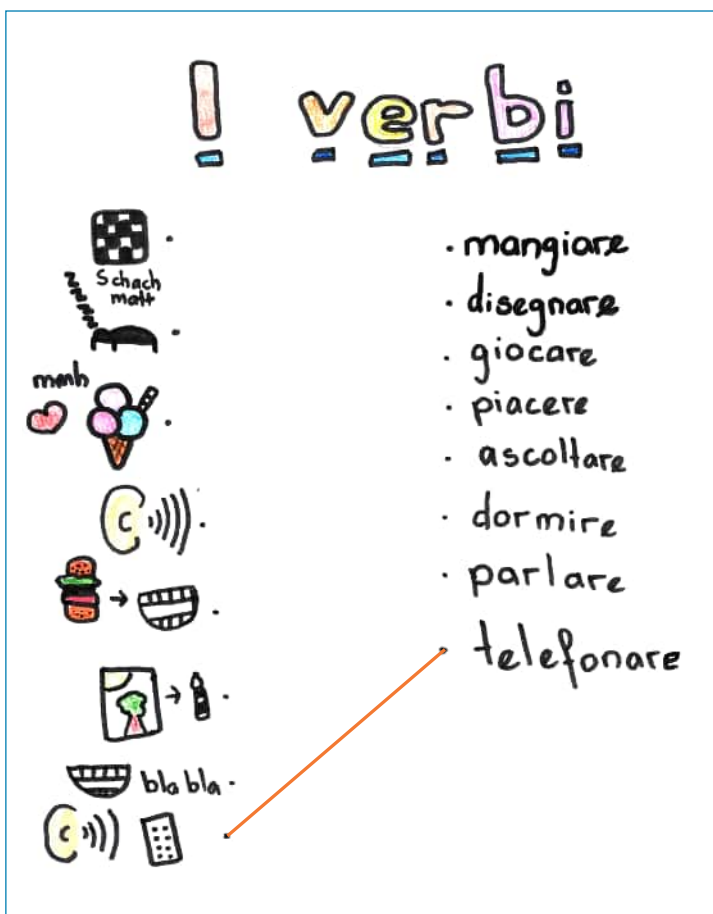 I verbi
Schach
matt
zzzzz
mmh
bla bla
mangiare
disegnare
giocare
piacere
ascoltare
dormire
parlare
telefonare